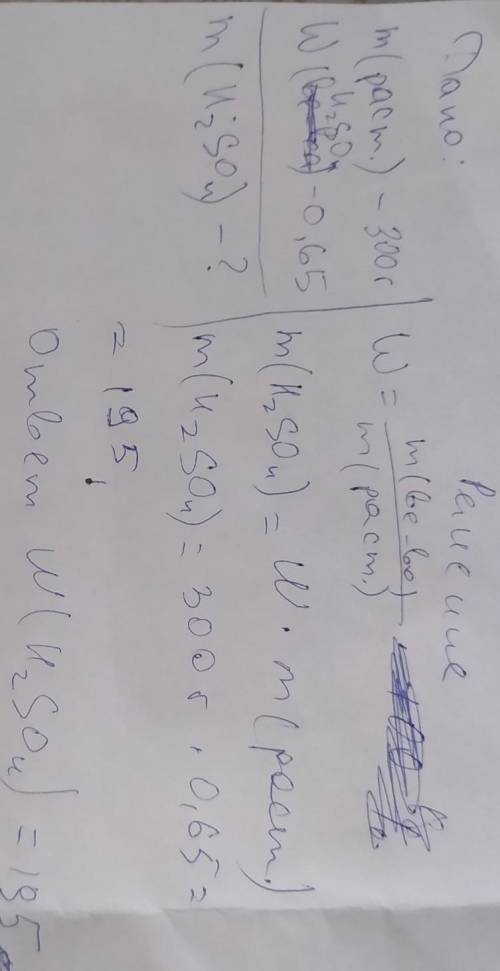 Дано:
m(раст.) - 300г
W(H₂SO₄) - 0,65
m(H₂SO₄) - ?
Решение
W = m(ве-во) / m(раст.)
m(H₂SO₄) = W · m(раст.)
m(H₂SO₄) = 300г · 0,65 =
= 195
Ответ W(H₂SO₄) = 195